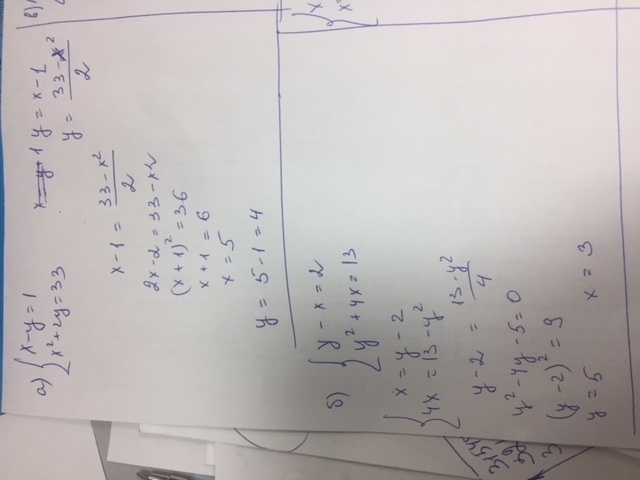 а) { x-y=1
x²+2y=33
x=y+1 y=x-1
y = 33-x² / 2
x-1 = 33-x² / 2
2x-2=33-x2
(x+1)²=36
x+1=6
x=5
y=5-1=4
б) { y-x=2
y²+4x=13
{ x=y-2
4x=13-y²
y-2 = 13-y² / 4
y²-4y-5=0
(y-2)²=9
y=5 x=3
в)
{ x
x